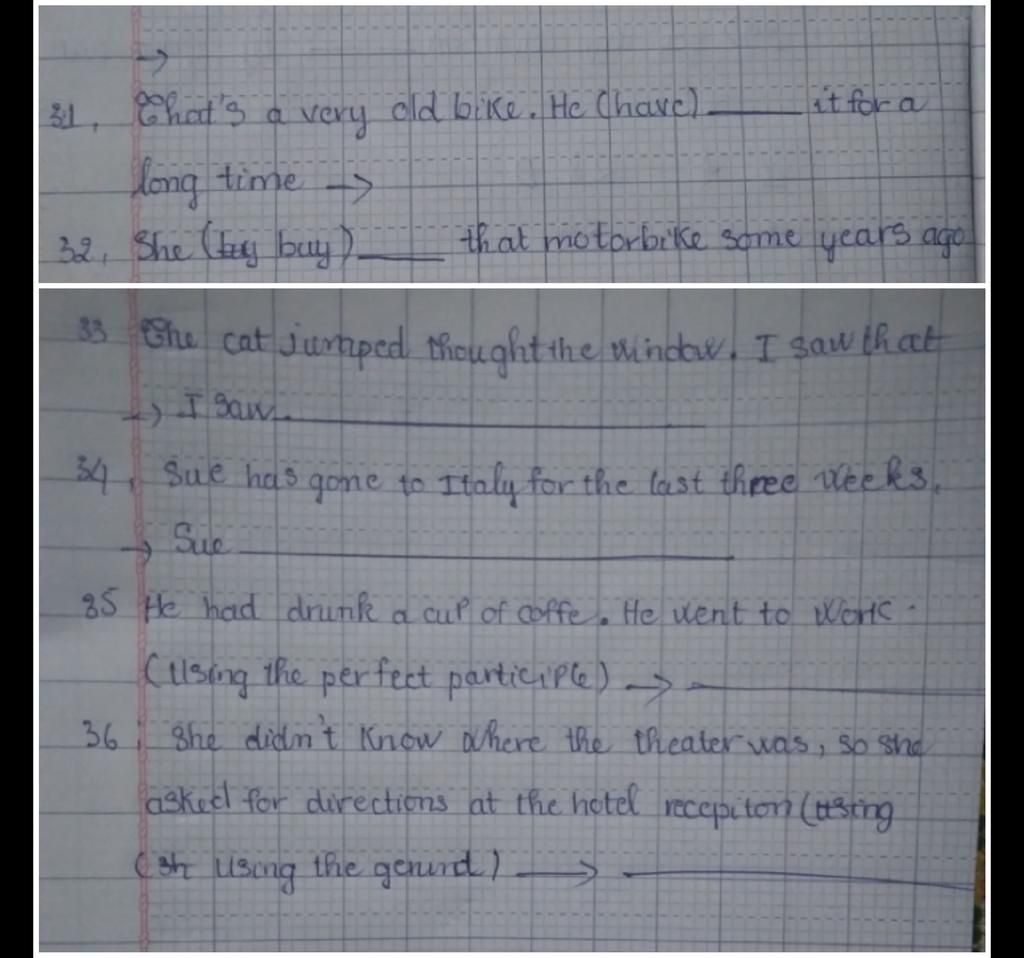 →
31. That's a very old bike. He (have) ____ it for a
long time →
32. She (buy buy) ____ that motorbike some years ago
33 The cat jumped thought the window. I saw that
→ I saw ____
34. Sue has gone to Italy for the last three weeks.
→ Sue ____
35 He had drunk a cup of coffe. He went to work.
(Using the perfect participle) → ____
36. She didn't know where the theater was, so she
asked for directions at the hotel recepiton (using
(sh using the gerund) → ____